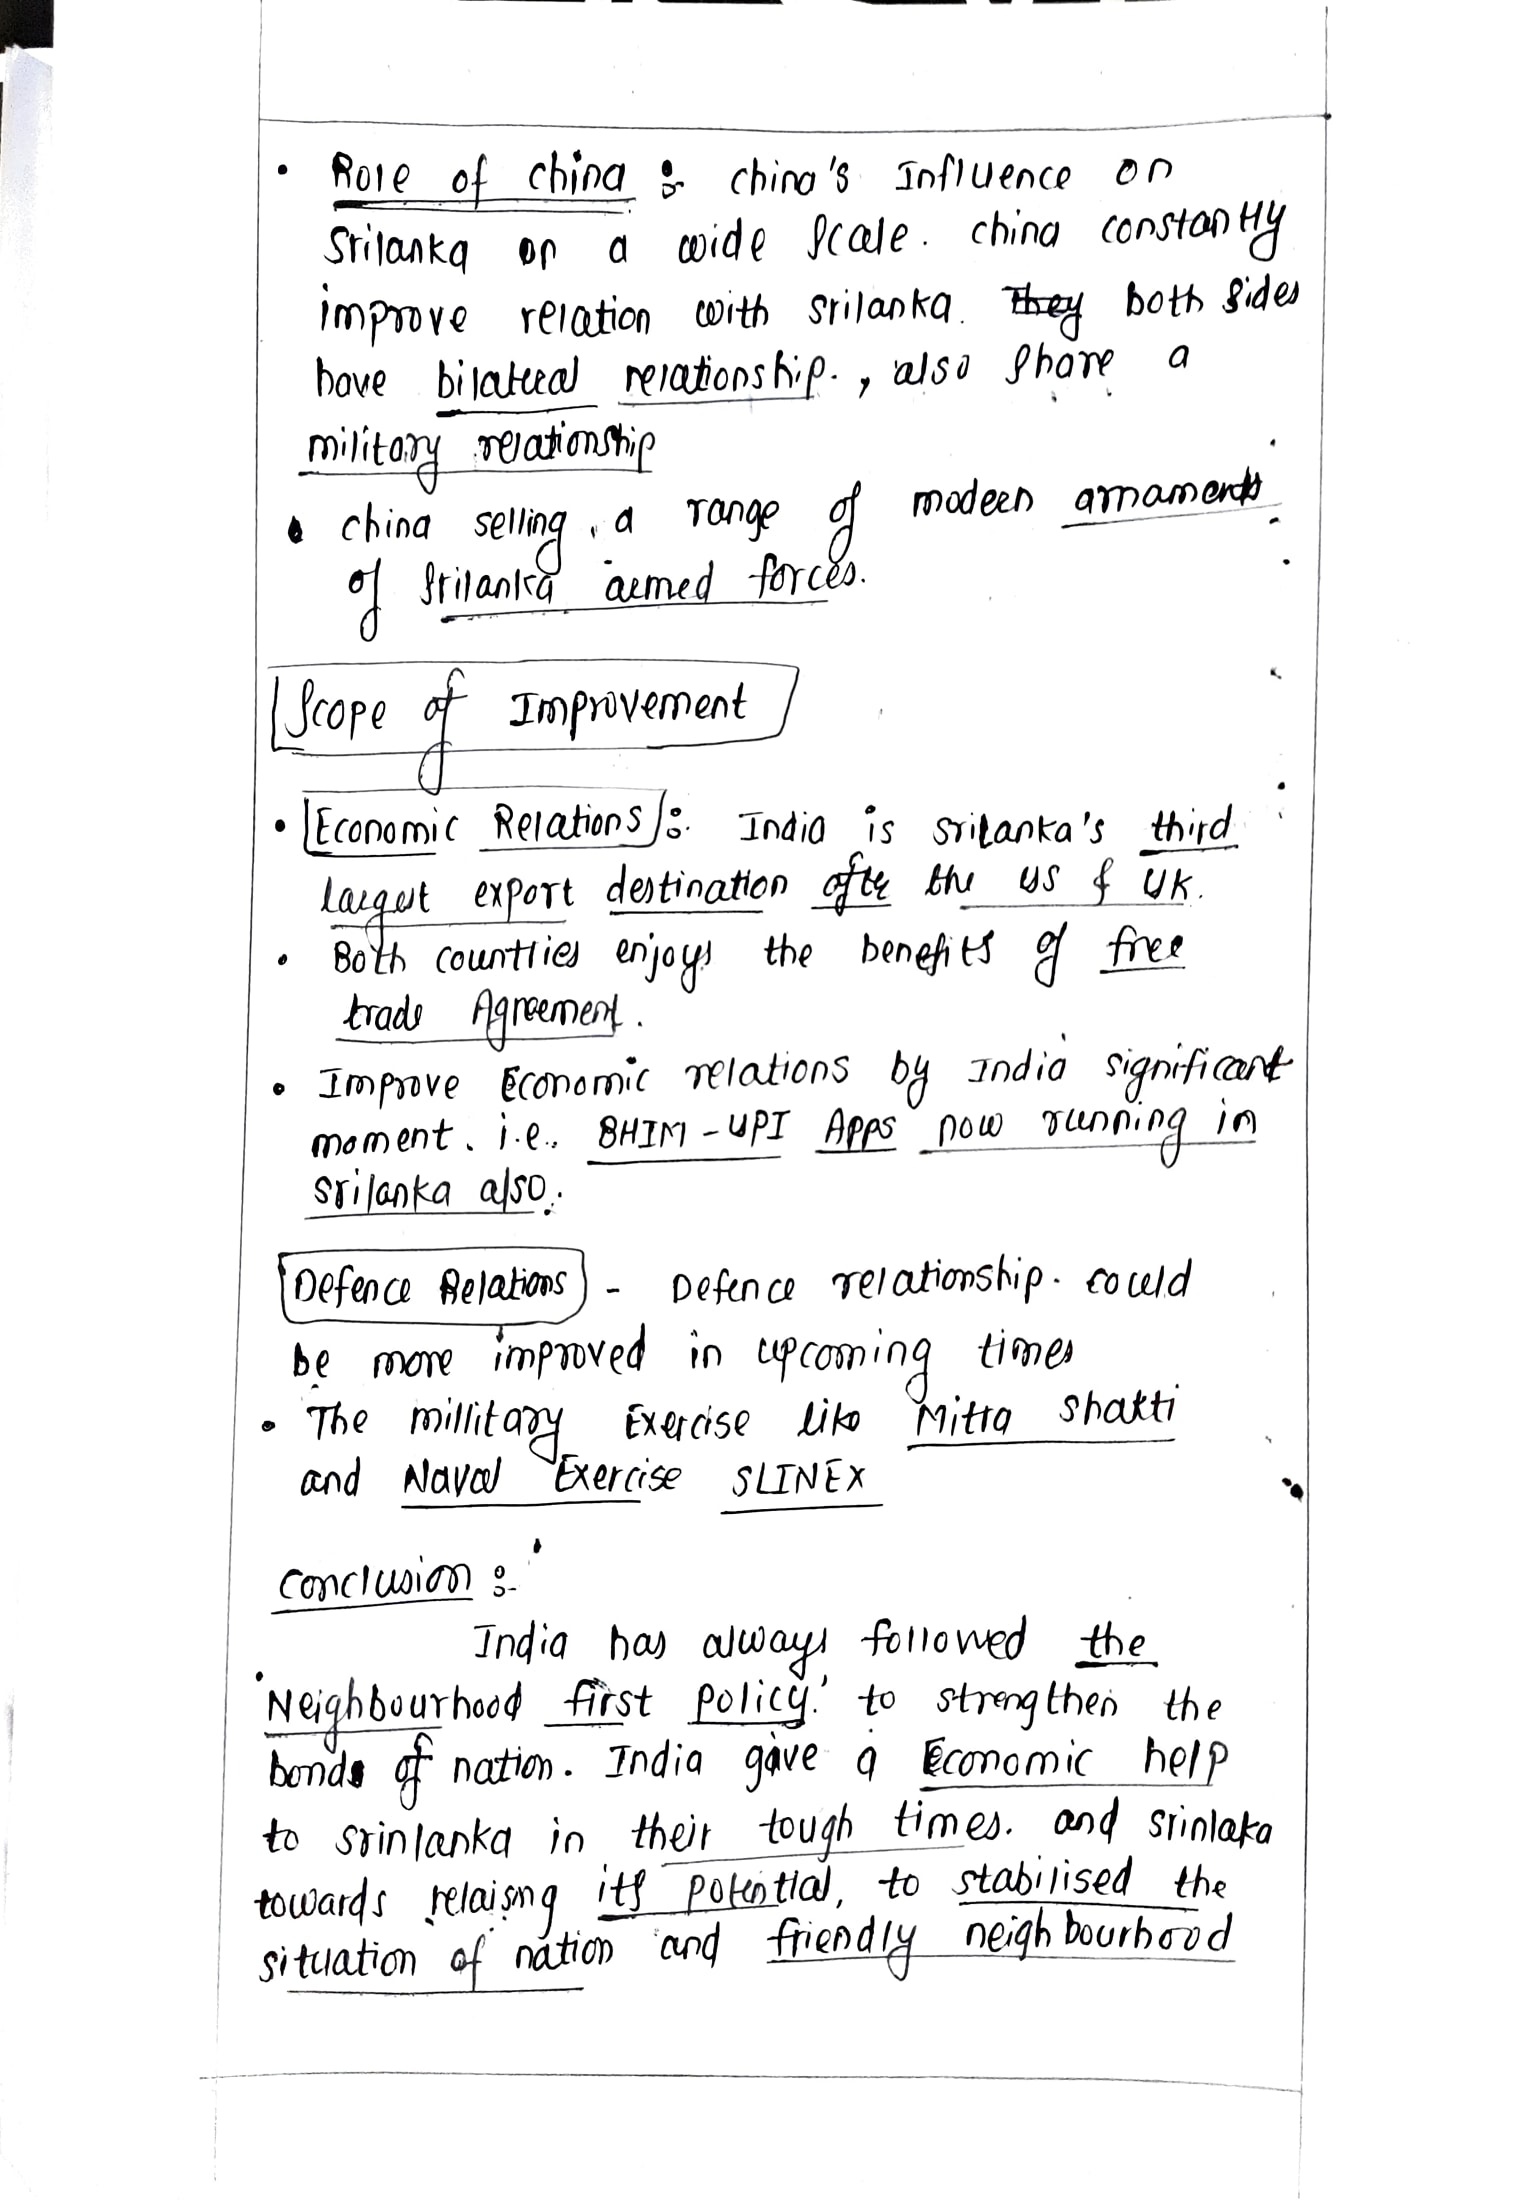 • Role of china :- china's Influence on
Srilanka on a wide scale. china constantly
improve relation with srilanka. They both sides
have bilateral relationship. , also share a
military relationship
• china selling a range of modern armaments
of Srilanka armed forces.
Scope of Improvement
• Economic Relations :- India is srilanka's third
largest export destination after the US & UK.
• Both countries enjoys the benefits of free
trade Agreement.
• Improve Economic relations by India significant
moment. i.e., BHIM-UPI Apps now running in
srilanka also.
Defence Relations - Defence relationship. could
be more improved in upcoming times
• The millitary Exercise like Mitra shakti
and Naval Exercise SLINEX
Conclusion :-
India has always followed the
'Neighbourhood first policy.' to strengthen the
bonds of nation. India gave a Economic help
to srinlanka in their tough times. and srinlaka
towards relaising its potential, to stabilised the
situation of nation and friendly neighbourhood